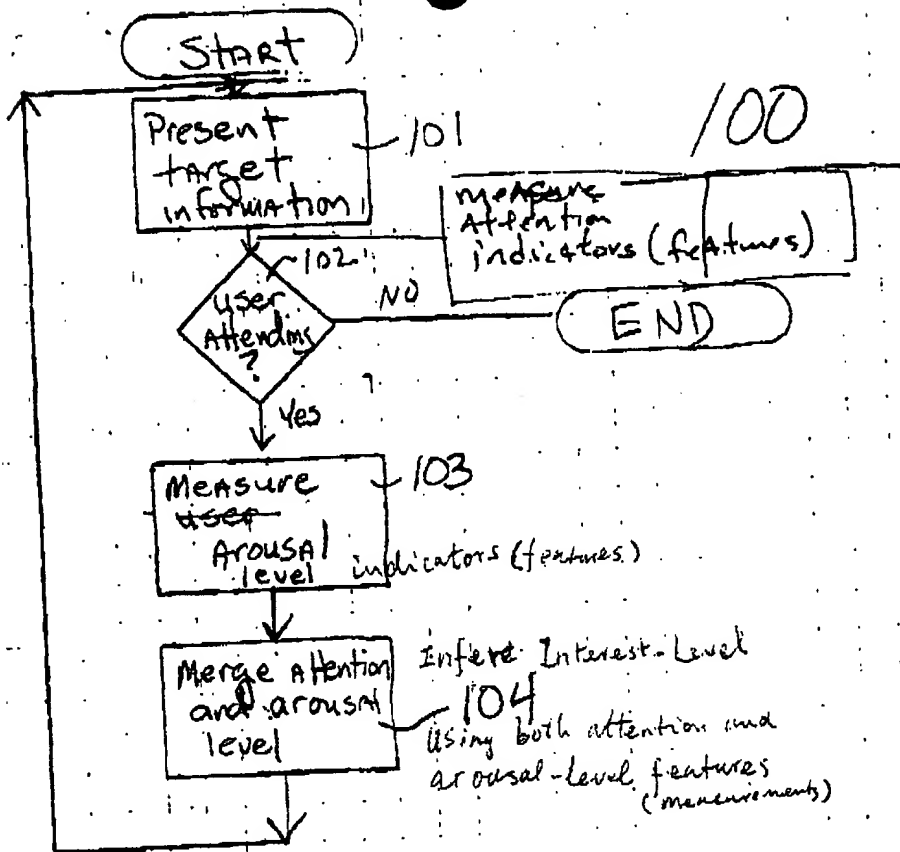 START
Present
target
information
101
100
measure
Attention
indicators (features)
102
user
Attending
?
NO
END
Yes
Measure
user
Arousal
level indicators (features)
103
Merge Attention
and arousal
level
Infere Interest-Level
104
Using both attention and
arousal-Level features
(measurements)